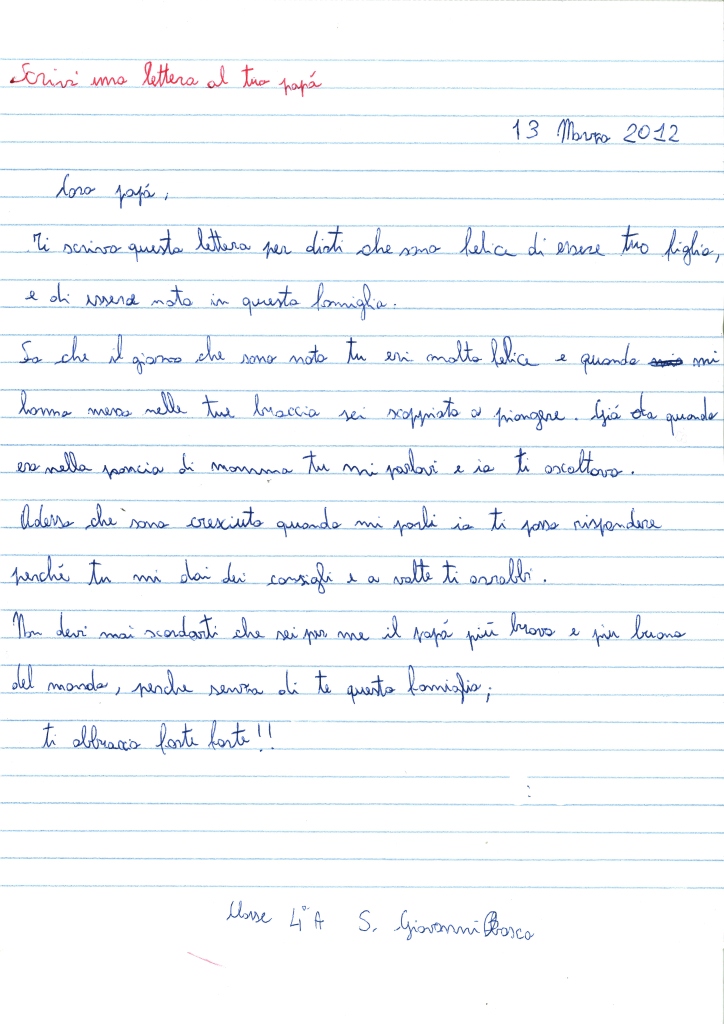 Scrivi una lettera al tuo papá
13 Marzo 2012
Caro papá,
Ti scrivo questa lettera per dirti che sono felice di essere tuo figlia,
e di essere nata in questa famiglia.
So che il giorno che sono nata tu eri molto felice e quando mi
hanno messo nelle tue braccia sei scoppiato a piangere. Giá da quando
ero nella pancia di mamma tu mi parlavi e io ti ascoltavo.
Adesso che sono cresciuta quando mi parli io ti posso rispondere
perché tu mi dai dei consigli e a volte ti arrabbi.
Non devi mai scordarti che sei per me il papá piú bravo e piu buono
del mondo, perche senza di te questa famiglia;
ti abbraccio forte forte!!
Classe 4°A S. Giovanni Bosco